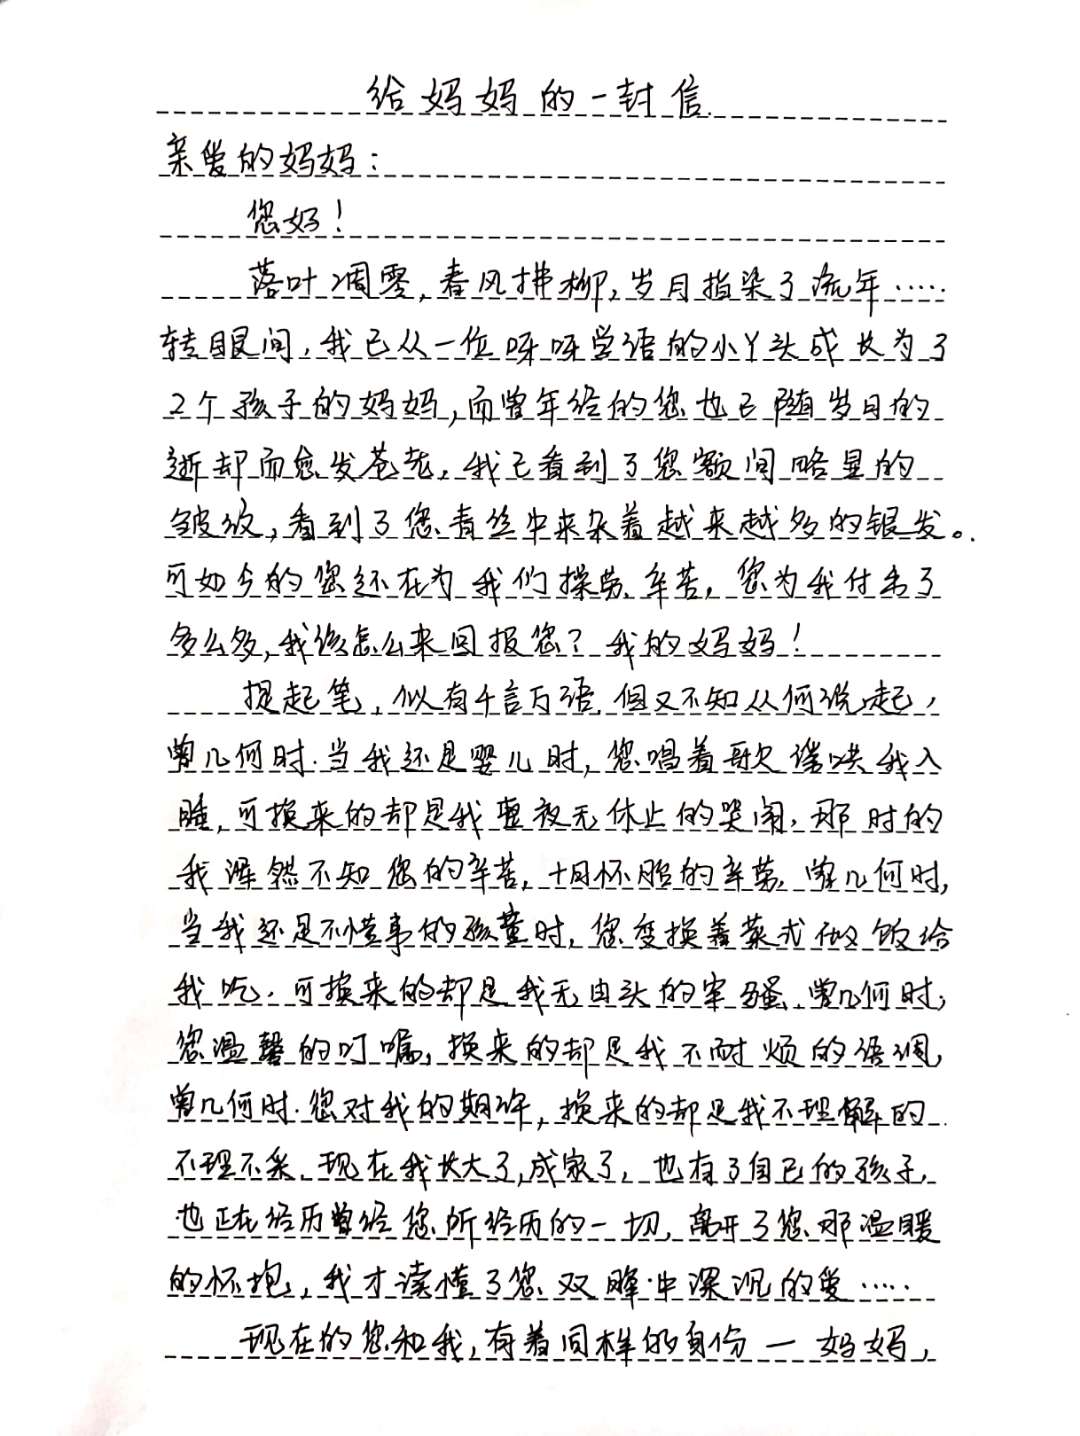 给妈妈的一封信
亲爱的妈妈：
您好！
落叶凋零，春风拂柳，岁月指染了流年……
转眼间，我已从一位呀呀学语的小丫头成长为了
2个孩子的妈妈，而曾年轻的您也已随岁月的
逝却而愈发苍老，我已看到了您额间略显的
皱纹，看到了您青丝中来杂着越来越多的银发。
可如今的您还在为我们操劳、辛苦，您为我付出了
多么多，我该怎么来回报您？我的妈妈！
提起笔，似有千言万语，但又不知从何说起，
曾几何时，当我还是婴儿时，您唱着歌谣哄我入
睡，可换来的却是我整夜无休止的哭闹，那时的
我浑然不知您的辛苦，十月怀胎的辛劳，曾几何时，
当我还是不懂事的孩童时，您变换着菜式做饭给
我吃，可换来的却是我无由头的牢骚，曾几何时，
您温馨的叮嘱，换来的却是我不耐烦的语调，
曾几何时，您对我的期许，换来的却是我不理解的
不理不采，现在我长大了，成家了，也有了自己的孩子，
也正在经历曾经您所经历的一切，离开了您那温暖
的怀抱，我才读懂了您双眸中深沉的爱……
现在的您和我，有着同样的身份一妈妈，